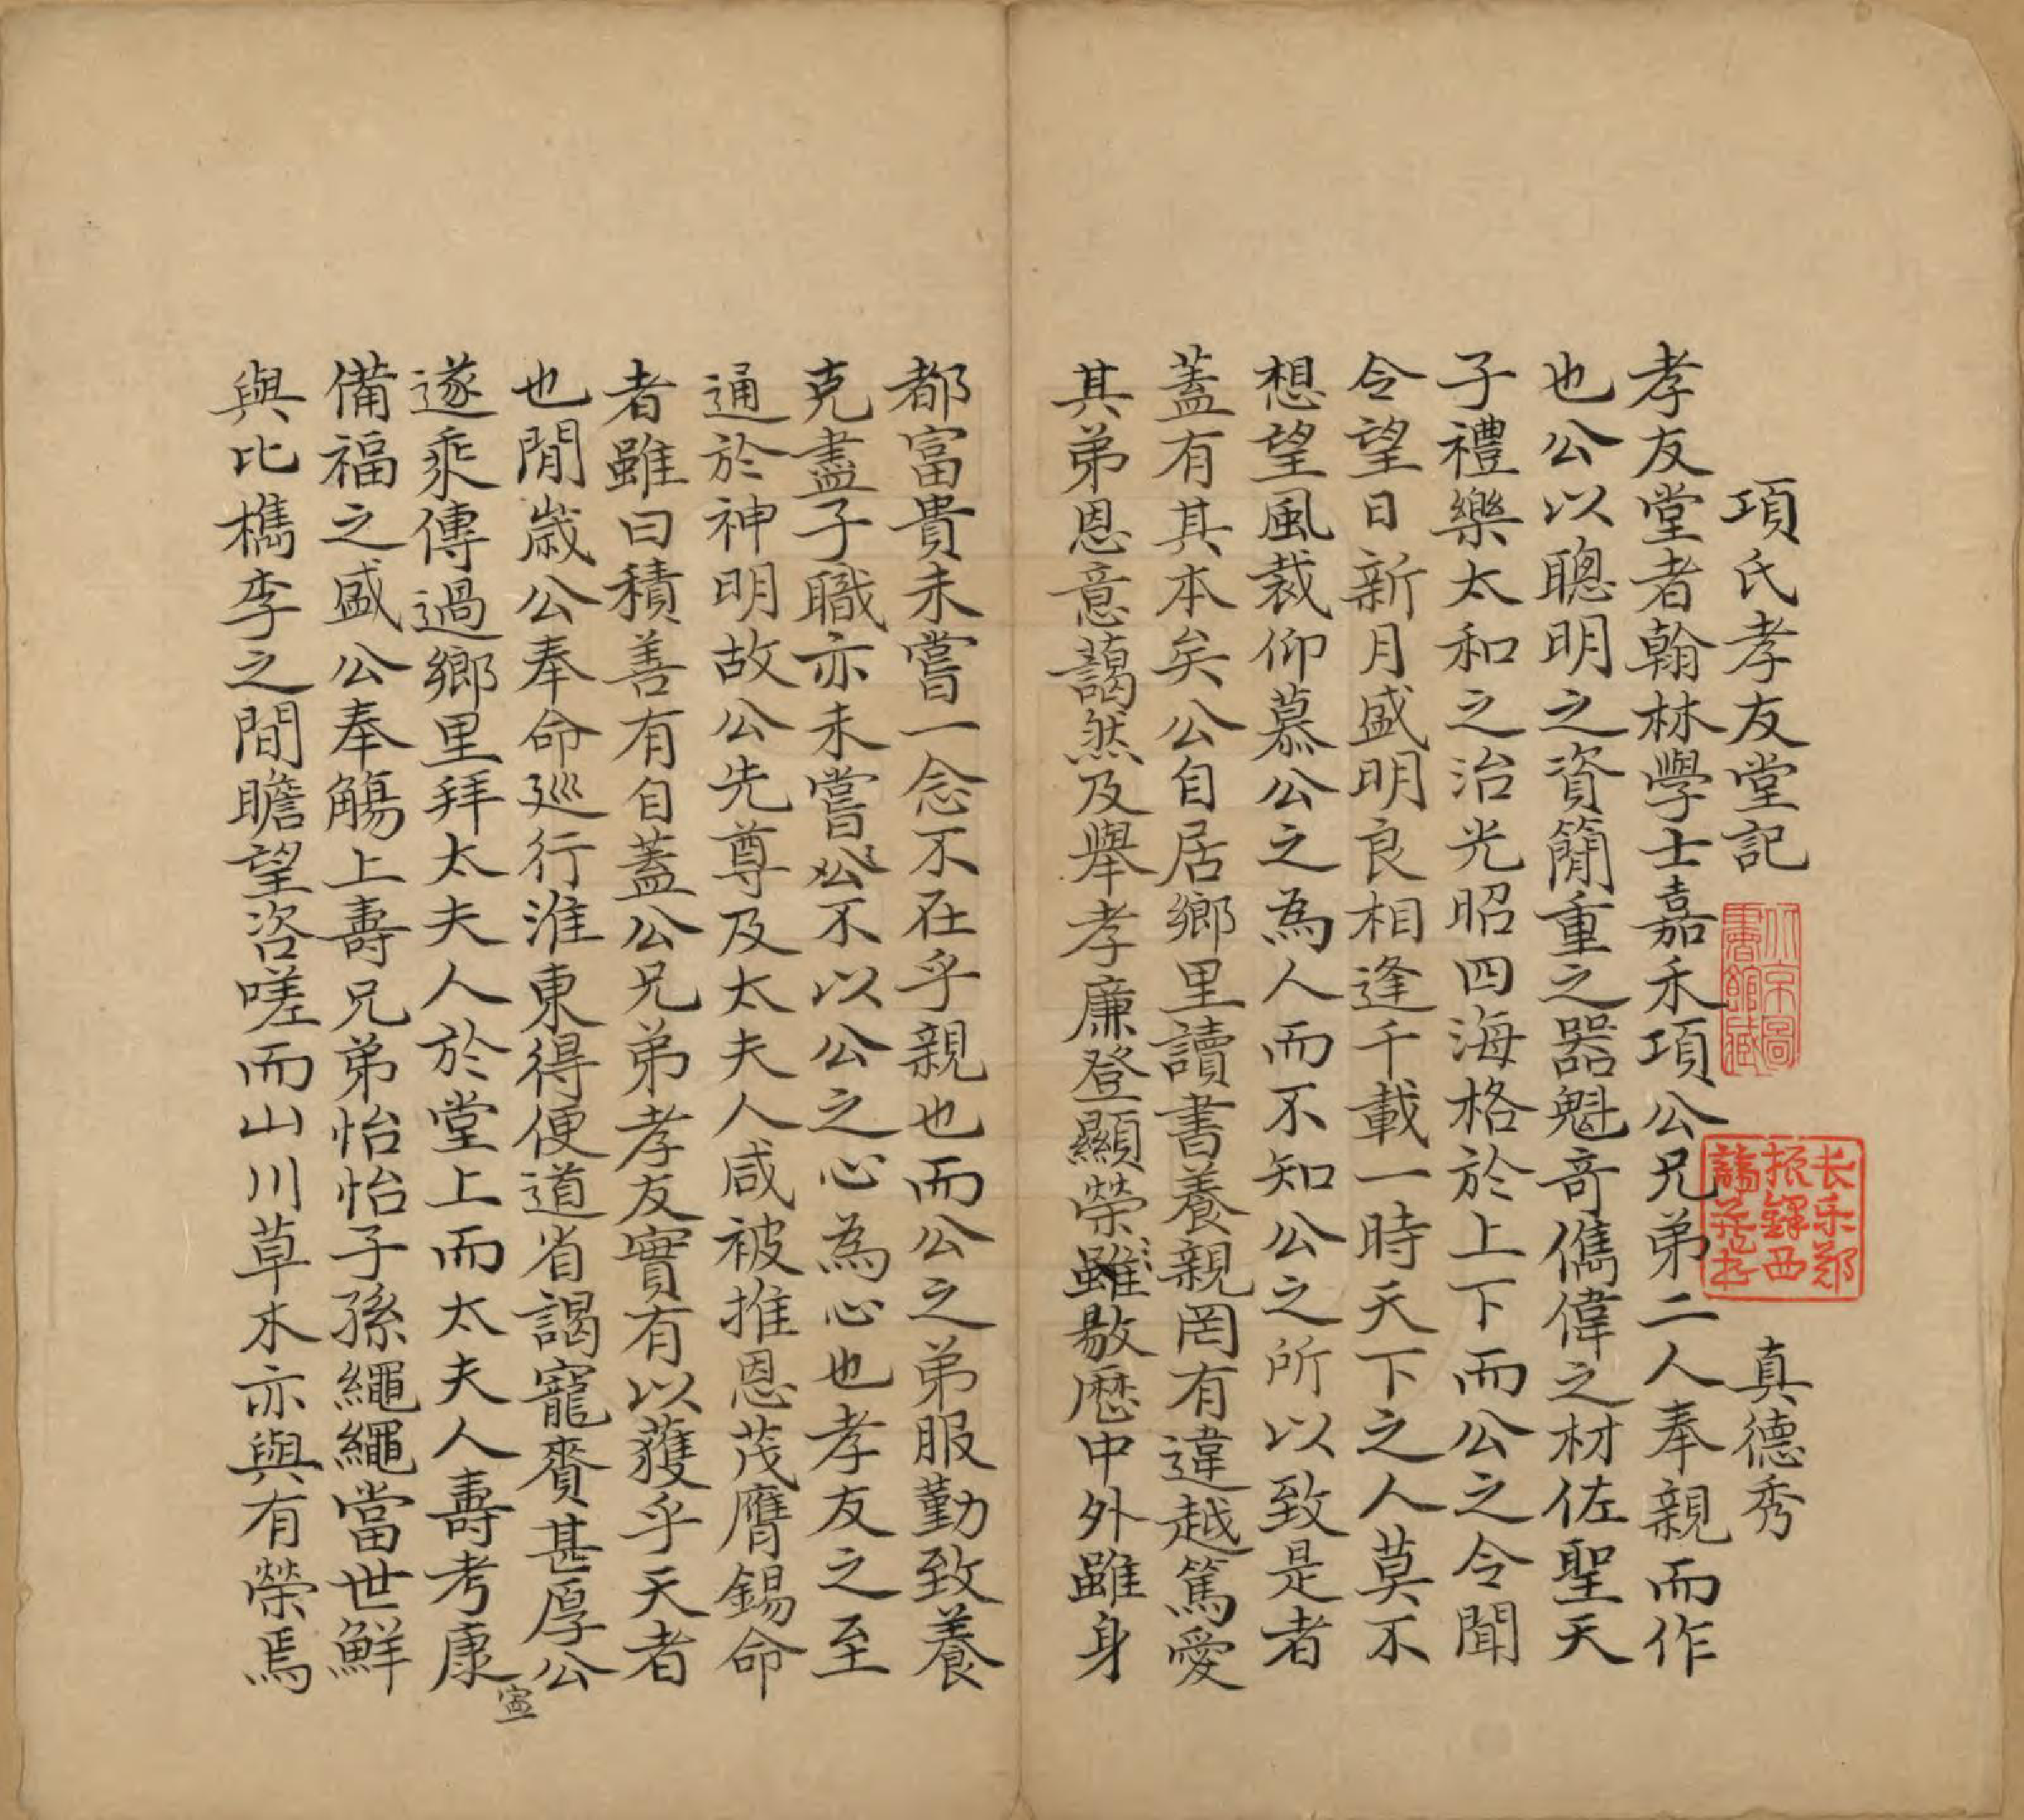 項氏孝友堂記 真德秀
孝友堂者翰林學士嘉禾項公兄弟二人奉親而作
也公以聰明之資簡重之器魁奇儁偉之材佐聖天
子禮樂太和之治光昭四海格於上下而公之令聞
令望日新月盛明良相逢千載一時天下之人莫不
想望風裁仰慕公之為人而不知公之所以致是者
蓋有其本矣公自居鄉里讀書養親罔有違越篤愛
其弟恩意藹然及舉孝廉登顯榮雖敭歷中外雖身
都富貴未嘗一念不在乎親也而公之弟服勤致養
克盡子職亦未嘗公不以公之心為心也孝友之至
通於神明故公先尊及太夫人咸被推恩茂膺錫命
者雖曰積善有自蓋公兄弟孝友實有以獲乎天者
也閒歲公奉命巡行淮東得便道省謁寵賚甚厚公
遂乘傳過鄉里拜太夫人於堂上而太夫人壽考康
寍
備福之盛公奉觴上壽兄弟怡怡子孫繩繩當世鮮
與比檇李之間瞻望咨嗟而山川草木亦與有榮焉
北京圖書館藏
长乐郑振鐸西諦藏书